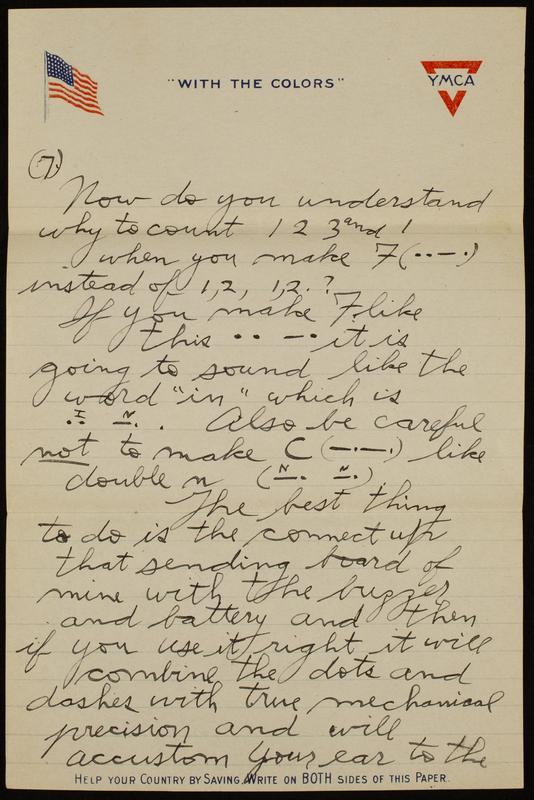 "WITH THE COLORS"
YMCA
(7)
Now do you understand
why to count 1 2 3 and 1
when you make F (··—·)
instead of 1,2, 1,2.?
If you make F like
this ·· —· it is
going to sound like the
word "in" which is
I N
·· —· . Also be careful
not to make C (—·—·) like
double n (N N
—· —·)
The best thing
to do is the connect up
that sending board of
mine with the buzzer
and battery and then
if you use it right it will
combine the dots and
dashes with true mechanical
precision and will
accustom your ear to the
HELP YOUR COUNTRY BY SAVING. WRITE ON BOTH SIDES OF THIS PAPER.